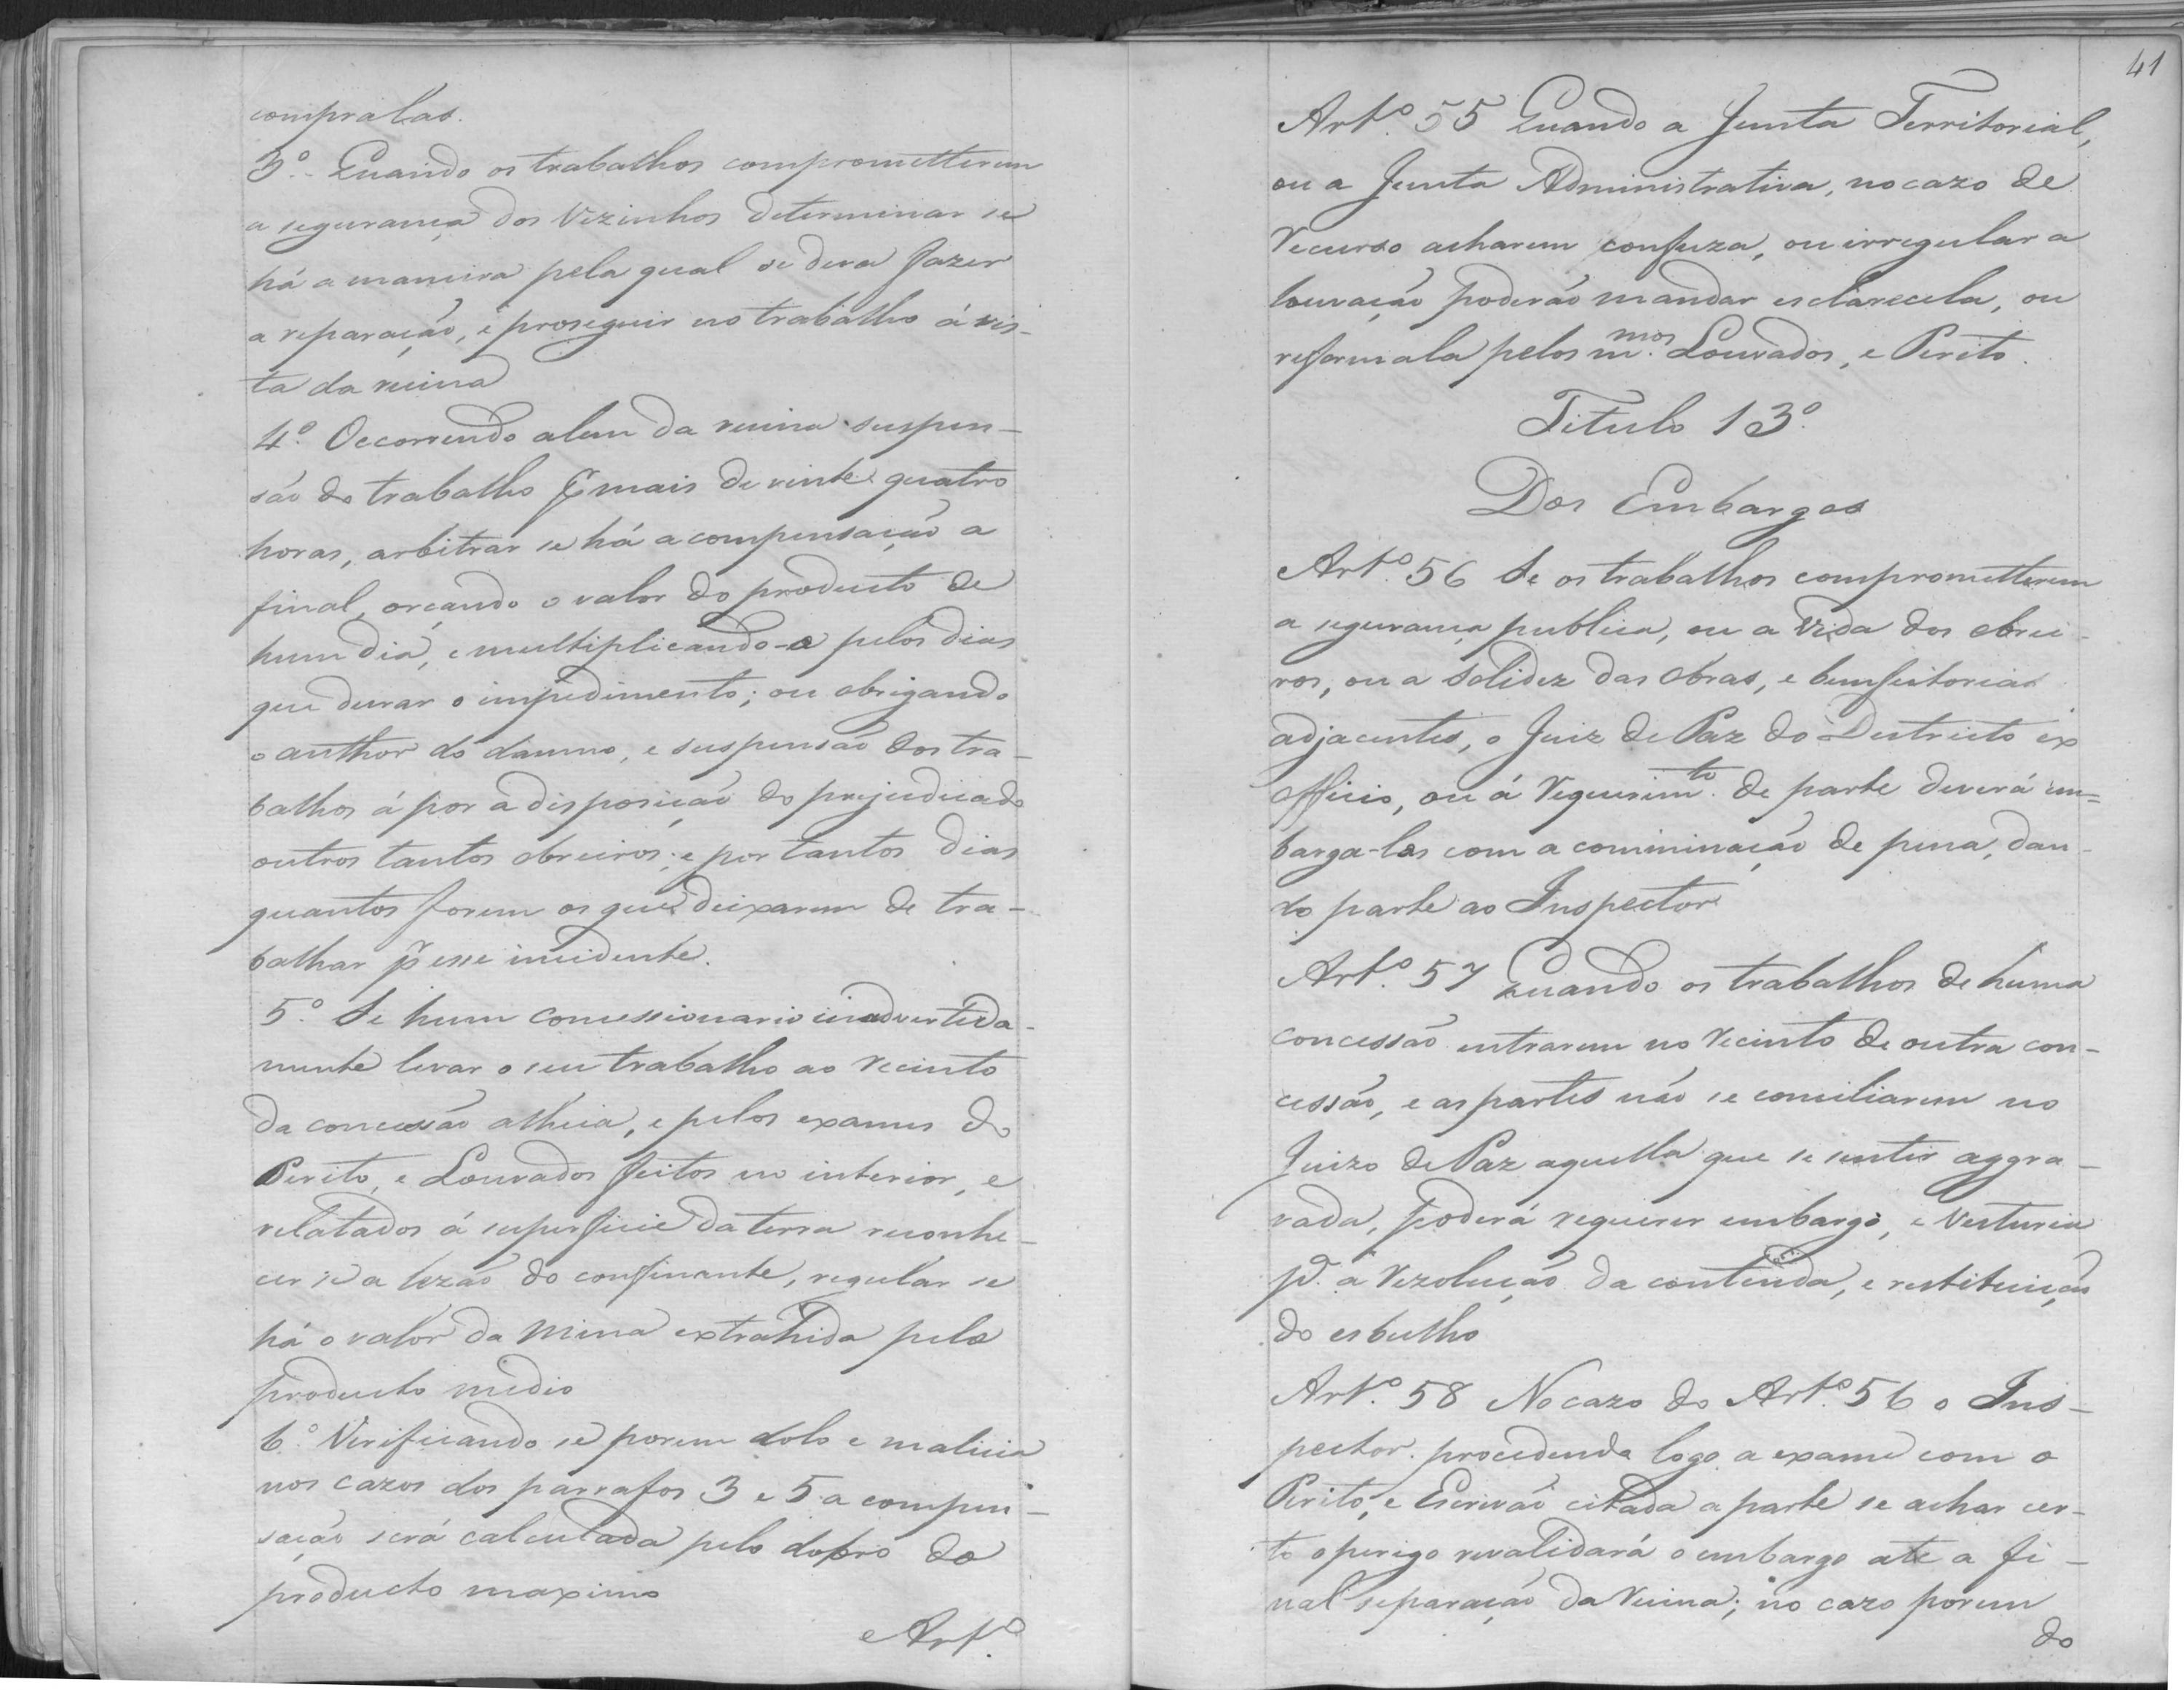 compralas.
3.º Quando os trabalhos comprometterem
a segurança dos Vezinhos determinar se
há a maneira pela qual se deva fazer
a reparação, e proseguir no trabalho á vis-
ta da ruina
4.º Occorrendo alem da ruina suspen-
são do trabalho p̃ mais de vinte quatro
horas, arbitrar se há a compensação a
final, orçando o valor do producto de
hum dia, e multiplicando-o pelos dias
que durar o impedimento; ou obrigando
o author do damno, e suspensão dos tra-
balhos á por a disposição do prejudicado
outros tantos obreiros; e por tantos dias
quantos forem os que deixarem de tra-
balhar p̃ esse incidente.
5.º Se hum concessionario inadvertida-
mente levar o seu trabalho ao recinto
da concessão alheia, e pelos exames do
Perito, e Louvados feitos no interior, e
relatados á superficie da terra reconhe-
cer se a lezão do confinante, regular se
há o valor da mina extrahida pelo
producto medio
6.º Verificando se porem dolo e malicia
nos cazos dos parrafos 3 e 5 a compen-
sação será calculada pelo dobro do
producto maximo
Art.º
41
Art.º 55 Quando a Junta Territorial,
ou a Junta Administrativa, no cazo de
recurso acharem confuza, ou irregular a
louvação poderão mandar esclarecela, ou
reformala pelos m.mos Louvados, e Perito.
Titulo 13.º
Dos Embargos
Art.º 56 Se os trabalhos comprometterem
a segurança publica, ou a vida dos obrei-
ros, ou a solidez das obras, e bemfeitorias
adjacentes, o Juiz de Paz do Destricto ex
officio, ou á requerim.to de parte deverá em=
barga-los com a comminação de pena, dan-
do parte ao Inspector
Art.º 57 Quando os trabalhos de huma
concessão entrarem no recinto de outra con-
cessão, e as partes não se conciliarem no
Juizo de Paz aquella que se sentir aggra-
vada, poderá requerer embargo, e Vesturia
p.ª a rezolução da contenda, e restituição
do esbulho
Art.º 58 No cazo do Art.º 56 o Ins-
pector procedendo logo a exame com o
Perito, e Escrivão citada a parte se achar cer-
to o perigo revalidará o embargo ate a fi-
nal separação da ruina; no cazo porem
do